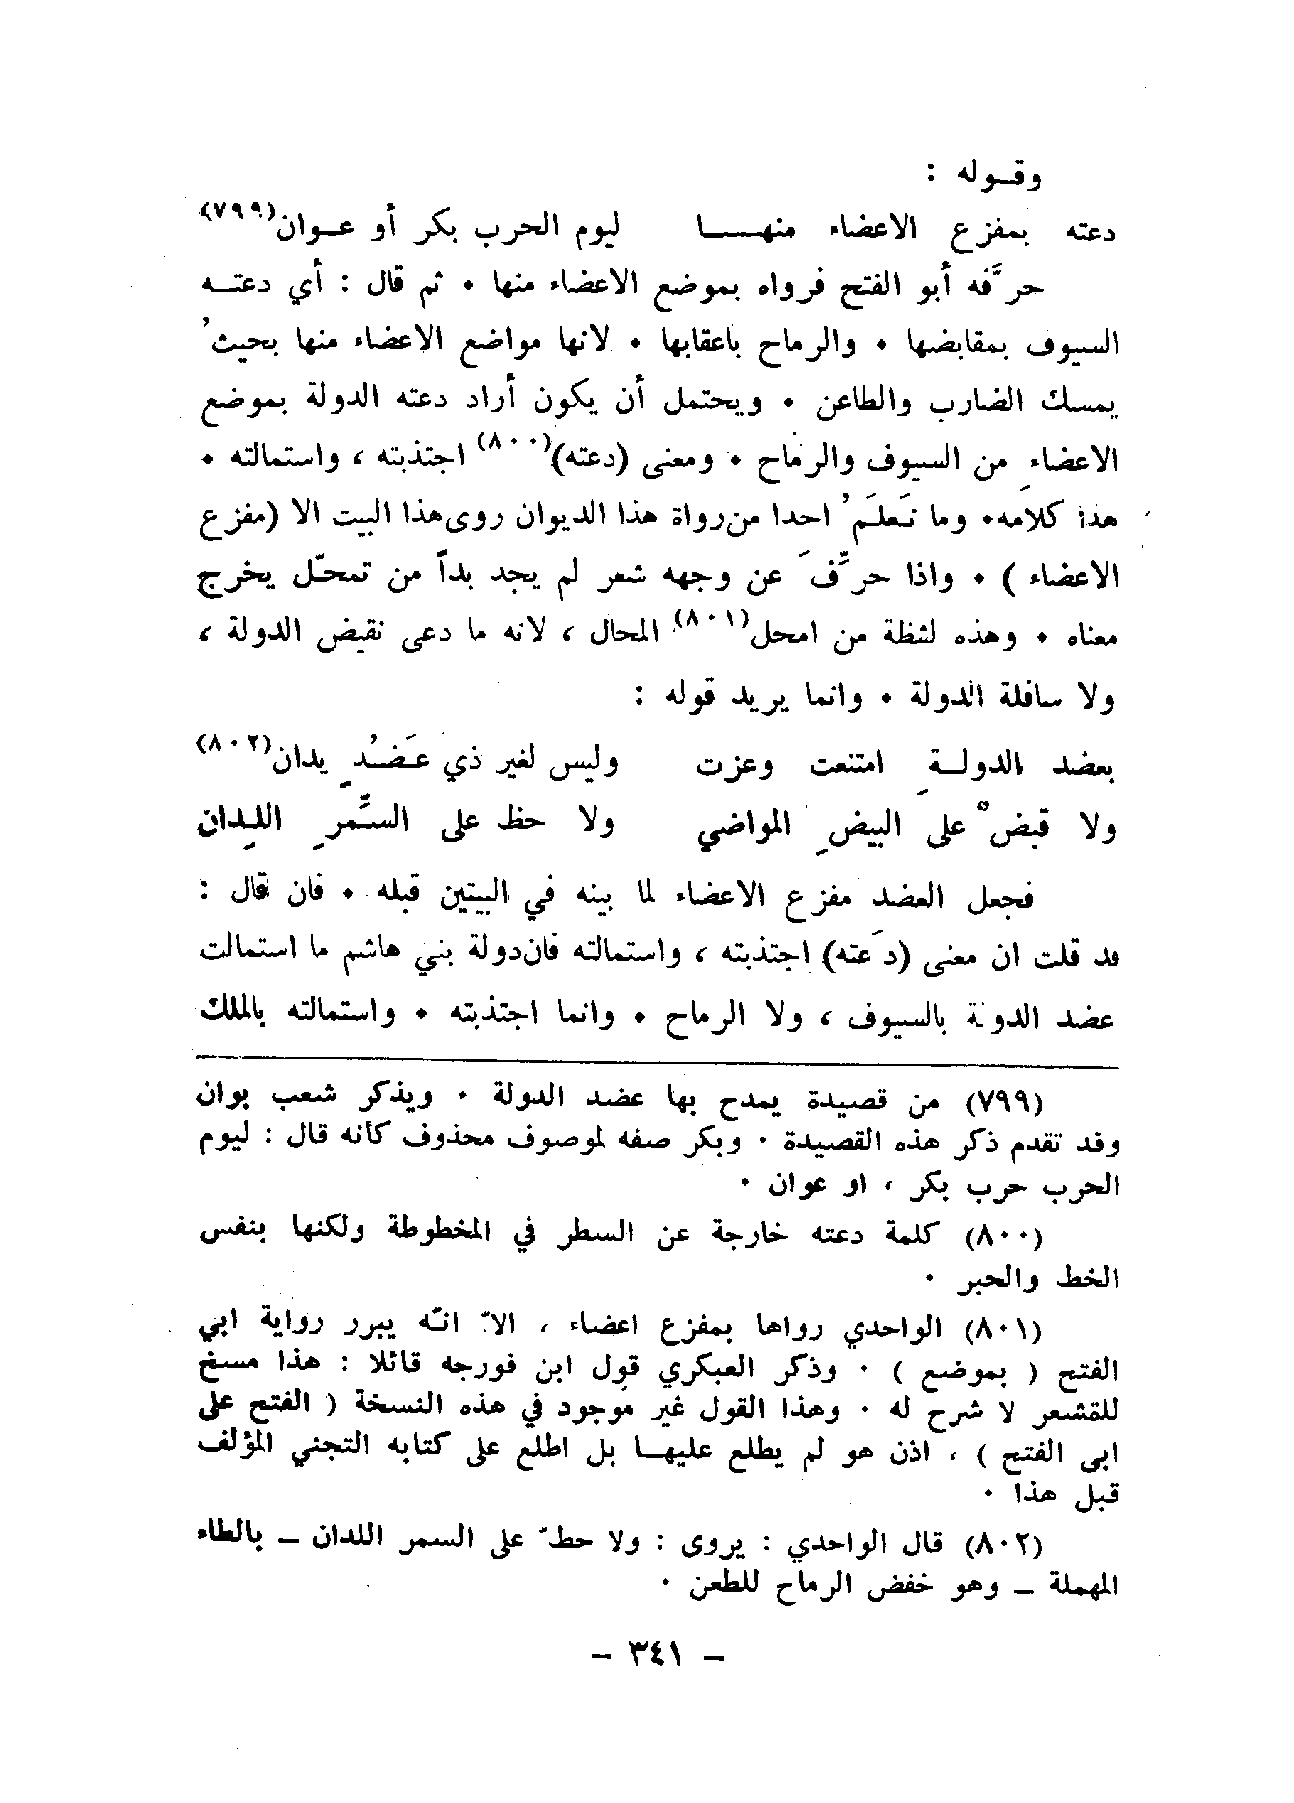 وقـوله :
دعته بمفزع الاعضاء منهـــا ليوم الحرب بكر أو عـوان(٧٩٩)
حرَّفه أبو الفتح فرواه بموضع الاعضاء منها • ثم قال : أي دعتـه
السيوف بمقابضها • والرماح باعقابها • لانها مواضع الاعضاء منها بحيثُ
يمسك الضارب والطاعن • ويحتمل أن يكون أراد دعته الدولة بموضع
الاعضاءِ من السيوف والرماح • ومعنى (دعته)(٨٠٠) اجتذبته ، واستمالته •
هذا كلامَه• وما نَعلَمُ احدا من رواة هذا الديوان روى هذا البيت الا (مفزع
الاعضاء ) • واذا حرِّفَ عن وجهه شعر لم يجد بداً من تمحّل يخرج
معناه • وهذه لفظة من امحل(٨٠١) المحال ، لانه ما دعى نقبض الدولة ،
ولا سافلة الدولة • وانما يريد قوله :
بعضد الدولـةِ امتنعت وعزت وليس لغير ذي عَضُـدٍ يدان(٨٠٢)
ولا قبضْ على البيضِ المواضي ولا حظ على السُّمرِ اللـِدان
فجعل العضد مفزع الاعضاء لما بينه في البيتين قبله • فان قال :
قد قلت ان معنى (دَعته) اجتذبته ، واستمالته فان دولة بني هاشم ما استمالت
عضد الدولة بالسيوف ، ولا الرماح • وانما اجتذبته • واستمالته بالملك
(٧٩٩) من قصيدة يمدح بها عضد الدولة • ويذكر شعب بوان
وقد تقدم ذكر هذه القصيدة • وبكر صفه لموصوف محذوف كأنه قال : ليوم
الحرب حرب بكر ، او عوان •
(٨٠٠) كلمة دعته خارجة عن السطر في المخطوطة ولكنها بنفس
الخط والحبر •
(٨٠١) الواحدي رواها بمفزع اعضاء ، الاّ انّه يبرر رواية ابي
الفتح ( بموضع ) • وذكر العبكري قول ابن فورجه قائلا : هذا مسخ
للقشعر لا شرح له • وهذا القول غير موجود في هذه النسخة ( الفتح على
ابى الفتح ) ، اذن هو لم يطلع عليهـا بل اطلع على كتابه التجني المؤلف
قبل هذا •
(٨٠٢) قال الواحدي : يروى : ولا حطّ على السمر اللدان – بالطاء
المهملة – وهو خفض الرماح للطعن •
– ٣٤١ –